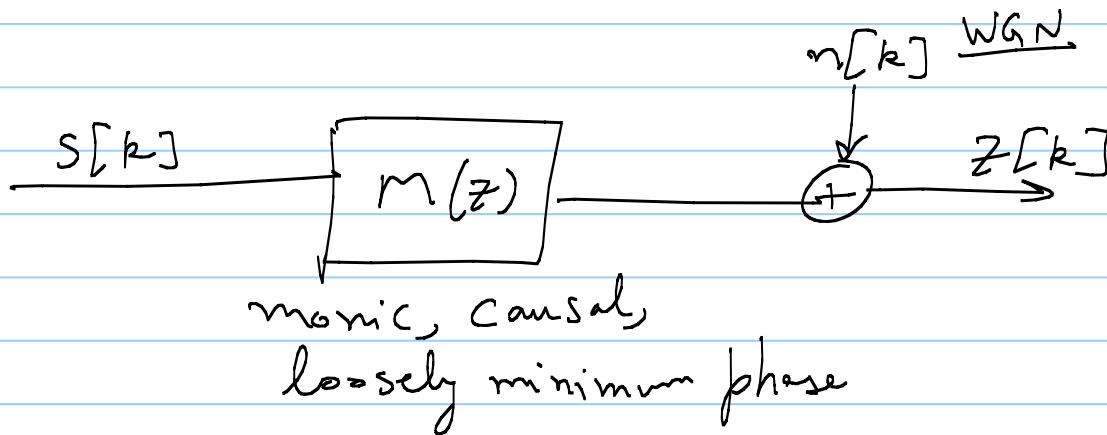 n[k] WGN
S[k]
M(z)
+
Z[k]
monic, causal,
loosely minimum phase